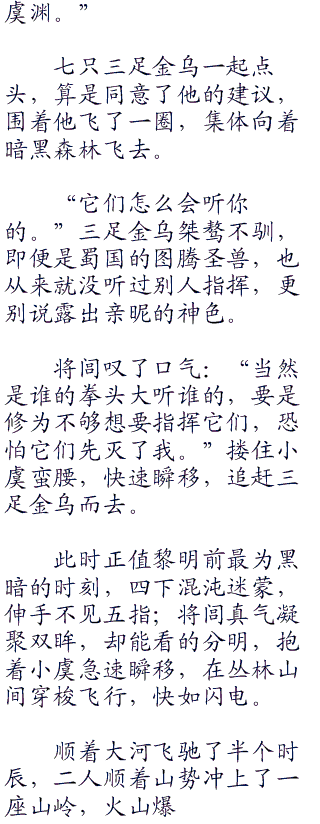 虞渊。”
七只三足金乌一起点
头，算是同意了他的建议，
围着他飞了一圈，集体向着
暗黑森林飞去。
“它们怎么会听你
的。”三足金乌桀骜不驯，
即便是蜀国的图腾圣兽，也
从来就没听过别人指挥，更
别说露出亲昵的神色。
将闾叹了口气：“当然
是谁的拳头大听谁的，要是
修为不够想要指挥它们，恐
怕它们先灭了我。”搂住小
虞蛮腰，快速瞬移，追赶三
足金乌而去。
此时正值黎明前最为黑
暗的时刻，四下混沌迷蒙，
伸手不见五指；将闾真气凝
聚双眸，却能看的分明，抱
着小虞急速瞬移，在丛林山
间穿梭飞行，快如闪电。
顺着大河飞驰了半个时
辰，二人顺着山势冲上了一
座山岭，火山爆